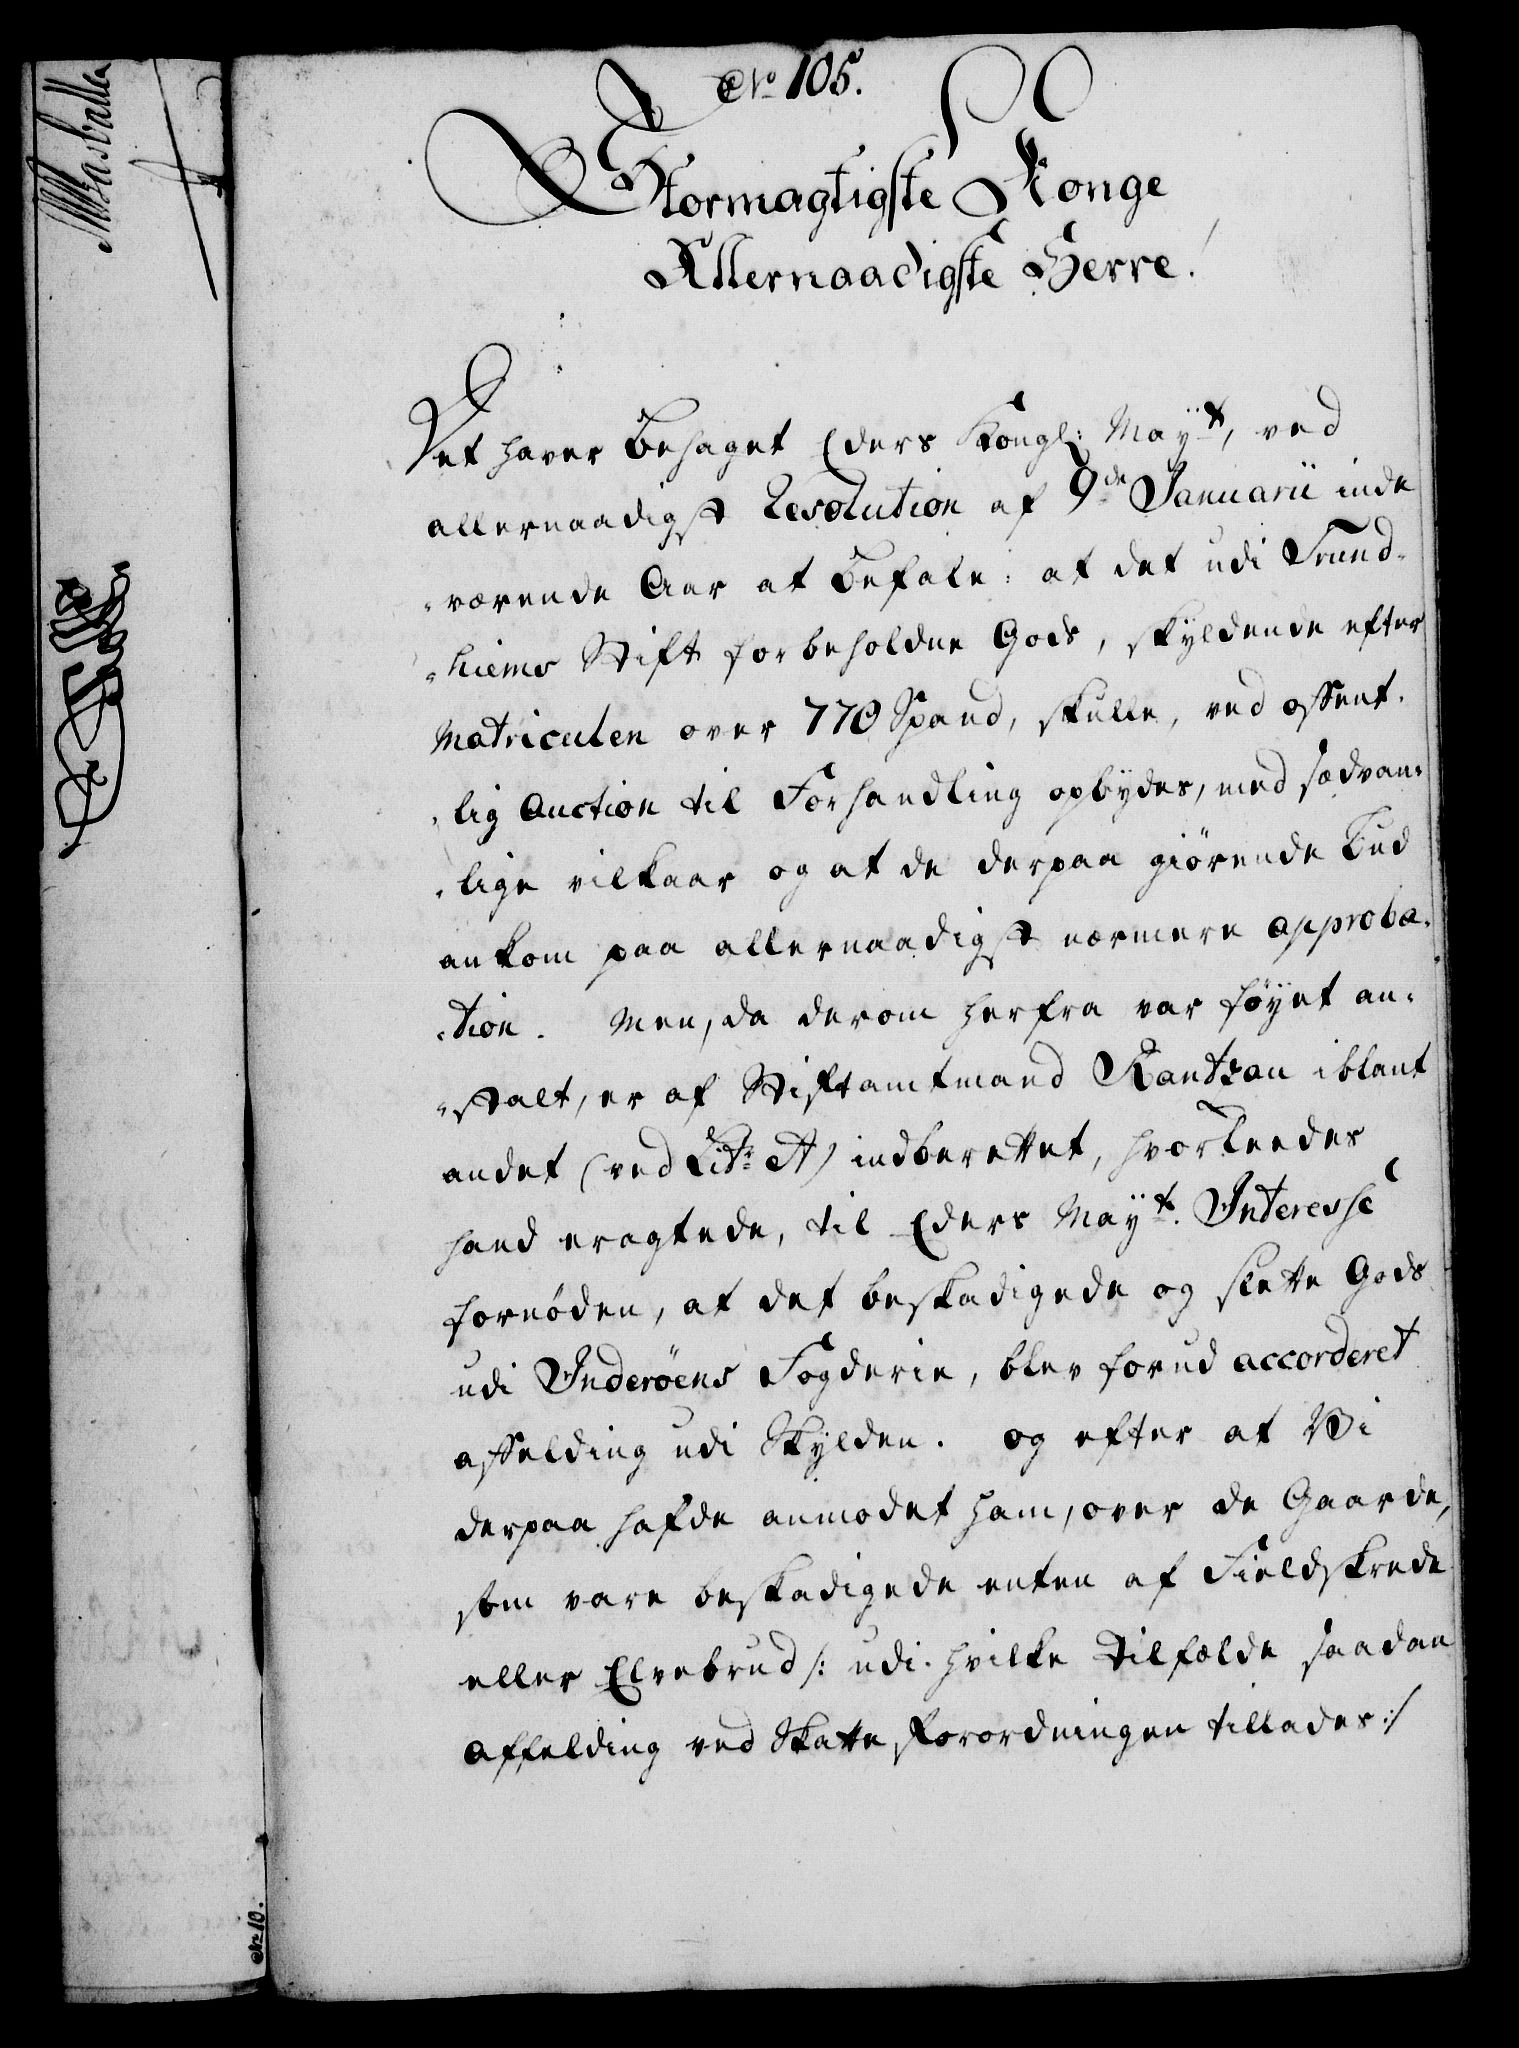 No 105.
Stormagtigste Konge
Allernaadigste Herre!
Det haver behaget Eders Kongl: Mayt, ved
allernaadigst Resolution af 9de Januarii inde
-værende Aar at befale: at det udi Trund-
-hiems Stift forbeholdne Gods, skyldende efter
Matriculen over 770 Spand, skulle, ved offent-
-lig Auction til Forhandling opbydes, med sædvan-
-lige vilkaar og at de derpaa giörende Bud
ankom paa allernaadigst nærmere approba-
-tion. Men, da derom herfra var föyet an-
-stalt, er af Stiftamtmand Rantzau iblant
andet (ved Litr: A) indberettet, hvorleedes
hand eragtede, til Eders Mayt. Interesse
fornöden, at det beskadigede og slette Gods
udi Inderöens Fogderie, blev forud accorderet
affelding udi Skylden. og efter at Vi
derpaa hafde anmodet ham, over de Gaarde,
som vare beskadigede enten af Fieldskrede
eller Elvebrud /: udi hvilke tilfælde saadan
affelding ved Skatte forordningen tillades:/
No 10.